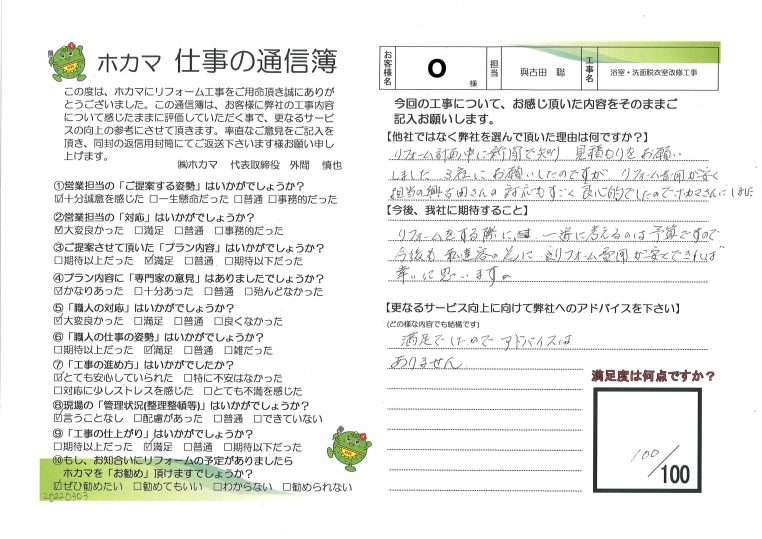 ホカマ 仕事の通信簿
この度は、ホカマにリフォーム工事をご用命頂き誠にありが
とうございました。この通信簿は、お客様に弊社の工事内容
について感じたままに評価していただく事で、更なるサービ
スの向上の参考にさせて頂きます。率直なご意見をご記入を
頂き、同封の返信用封筒にてご返送下さいます様お願い申し
上げます。
㈱ホカマ 代表取締役 外間 慎也
①営業担当の「ご提案する姿勢」はいかがでしょうか?
☑十分誠意を感じた □一生懸命だった □普通 □事務的だった
②営業担当の「対応」はいかがでしょうか?
☑大変良かった □満足 □普通 □事務的だった
③ご提案させて頂いた「プラン内容」はいかがでしょうか?
□期待以上だった ☑満足 □普通 □期待以下だった
④プラン内容に「専門家の意見」はありましたでしょうか?
☑かなりあった □十分あった □普通 □殆んどなかった
⑤「職人の対応」はいかがでしょうか?
☑大変良かった □満足 □普通 □良くなかった
⑥「職人の仕事の姿勢」はいかがでしょうか?
□期待以上だった ☑満足 □普通 □雑だった
⑦「工事の進め方」はいかがでしたか?
☑とても安心していられた □特に不安はなかった
□対応に少しストレスを感じた □とても不満を感じた
⑧現場の「管理状況(整理整頓等)」はいかがでしょうか?
☑言うことなし □配慮があった □普通 □できていない
⑨「工事の仕上がり」はいかがでしょうか?
□期待以上だった ☑満足 □普通 □期待以下だった
⑩もし、お知合いにリフォームの予定がありましたら
ホカマを「お勧め」頂けますでしょうか?
☑ぜひ勧めたい □勧めてもいい □わからない □勧められない
20220303
お客様名 O 様 担当 與古田 聡 工事名 浴室・洗面脱衣室改修工事
今回の工事について、お感じ頂いた内容をそのままご
記入お願いします。
【他社ではなく弊社を選んで頂いた理由は何ですか?】
リフォーム計画中に新聞で知り 見積もりをお願い
しました 3社にお願いしたのですが リフォーム費用が安く
担当の與古田さんの対応もすごく良心的でしたのでホカマさんにしました
【今後、我社に期待すること】
リフォームをする際に 一番に考えるのは予算ですので
今後も のに リフォーム費用が安くできれば
幸いに思います。
【更なるサービス向上に向けて弊社へのアドバイスを下さい】
(どの様な内容でも結構です)
満足でしたので アドバイスは
ありません
満足度は何点ですか?
100/100